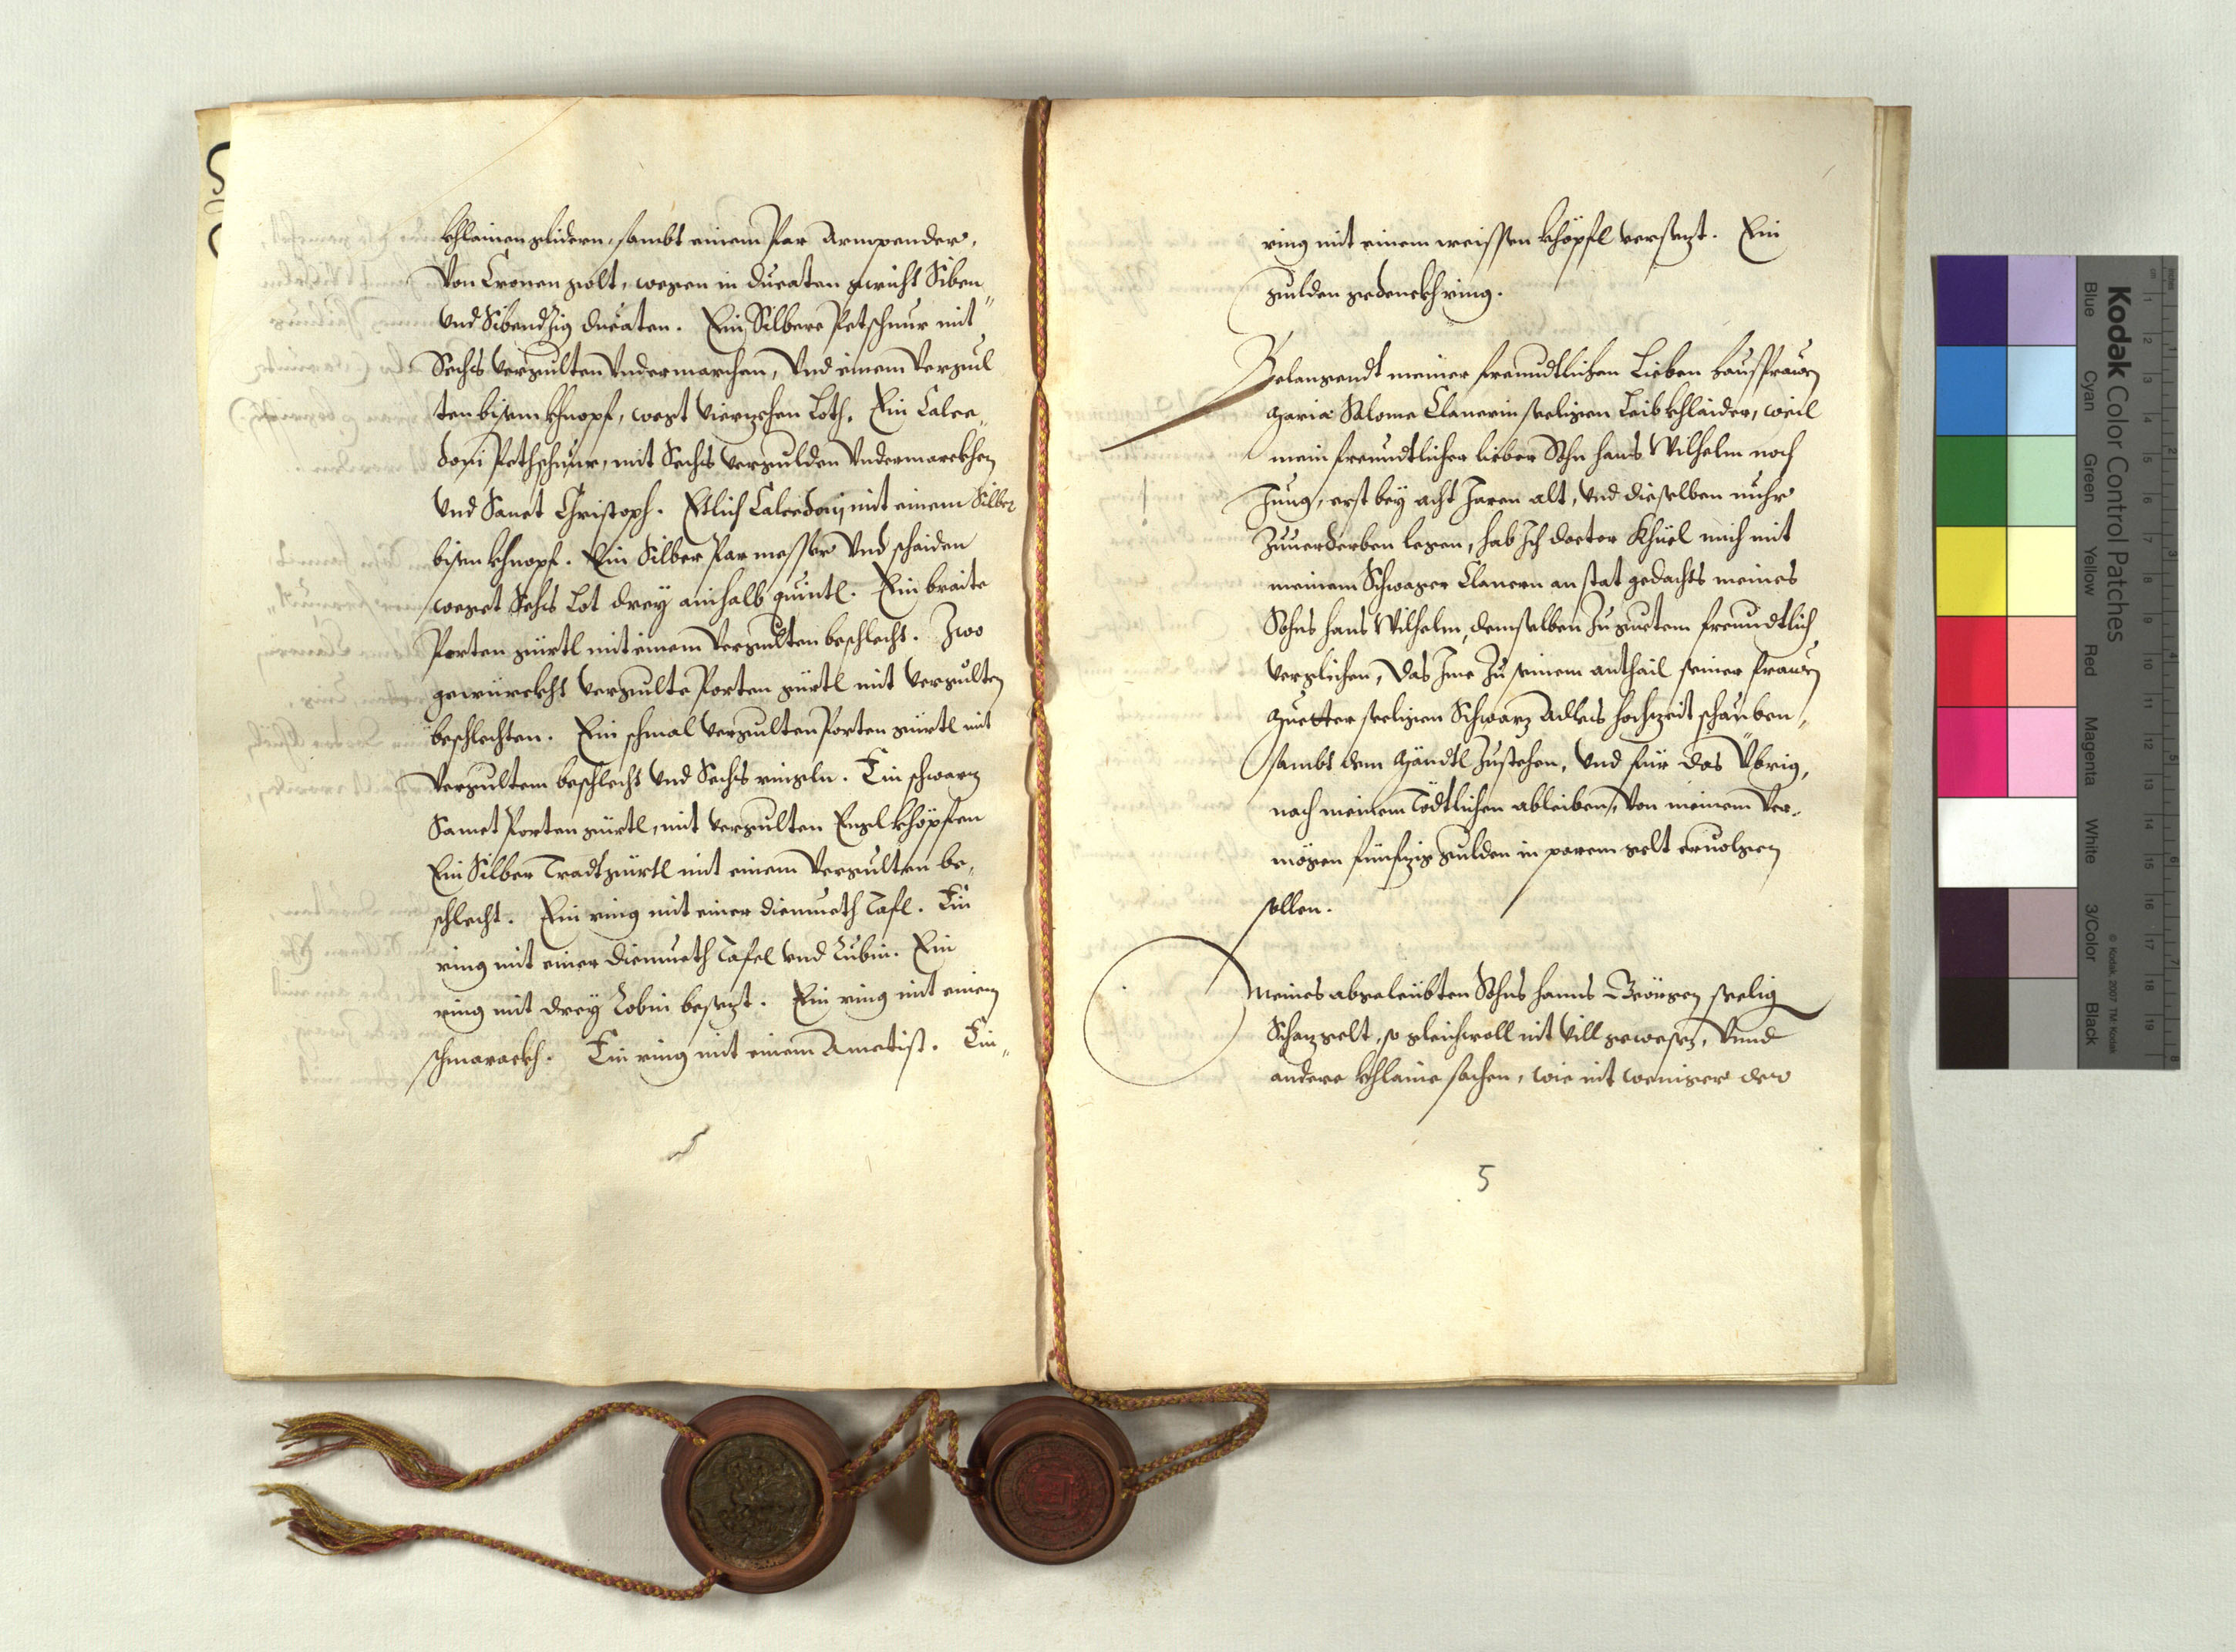 khlainen glidern, sambt einem Par Armpender,
Von Cronen golt, wegen in ducaten gwicht Siben
Vnd Sibendzig ducaten. Ein Silbere Petschnur mit
Sechs Vergulten Vndermarchen, Vnd einem Vergul
ten bisem khnopf, wegt Vierzehen Loth. Ein Calce„
doni Pethschnur, mit Sechs Vergulden Vndermarckhen
Vnd Sanct Christoph. Etlich Calcedonj mit einem Silber
bisen khnopf. Ein Silber Par messer Vnd schaiden
weget Sechs Lot drey ainhalb quintl. Ein braite
Porten gürtl mit einem Vergulten beschlecht. Zwo
gewürckht Vergulte Porten gürtl mit Vergulten
beschlechten. Ein schmal Vergulten Porten gürtl mit
Vergultem beschlecht Vnd Sechs ringeln. Ein schwarz
Samet Porten gürtl, mit Vergulten Engelkhöpfen
Ein Silber Tradtgürtl mit einem Vergulten be„
schlecht. Ein ring mit einer diemueth Tafl. Ein
ring mit einer diemueth Tafel Vnd Rubin. Ein
ring mit drey Robin besetzt. Ein ring mit einem
schmarackh. Ein ring mit einem Ametist. Ein„
ring mit einem weissen khöpfl Versetzt. Ein
gulden gedenckhring.
Belangendt meiner freundtlichen Lieben hausfrawen
Maria Salome Clanerin seeligen Leibkhlaider, weil
mein freundtlicher lieber Sohn hans Wilhelm noch
Jung, erst bey acht Jaren alt, Vnd dieselben nuhr
Zuuerderben legen, hab Ich doctor Khüel mich mit
meinem Schwager Clanern an stat gedachts meines
Sohns hans Wilhelm, demselben Zu guetem freundtlich
Verglichen, das Ime Zu seinem anthail seiner frawen
Muetter seeligen Schwarz Adleis hochzeit schauben,
sambt dem Mändtl Zustehen, Vnd für das Vbrig,
nach meinem Tödtlichen ableiben, Von meinem Ver„
mögen fünfzig gulden in parem gelt eruolgen
sollen.
Meines abgeleübten Sohns hanns Geörgen seelig
Schazgelt, so gleichwoll nit Vill gewesen, Vnnd
andere khlaine sachen, wie nit weniger der
5
Kodak Color Control Patches
Blue Cyan Green Yellow Red Magenta White 3/Color Black
© Kodak 2007 TM: Kodak